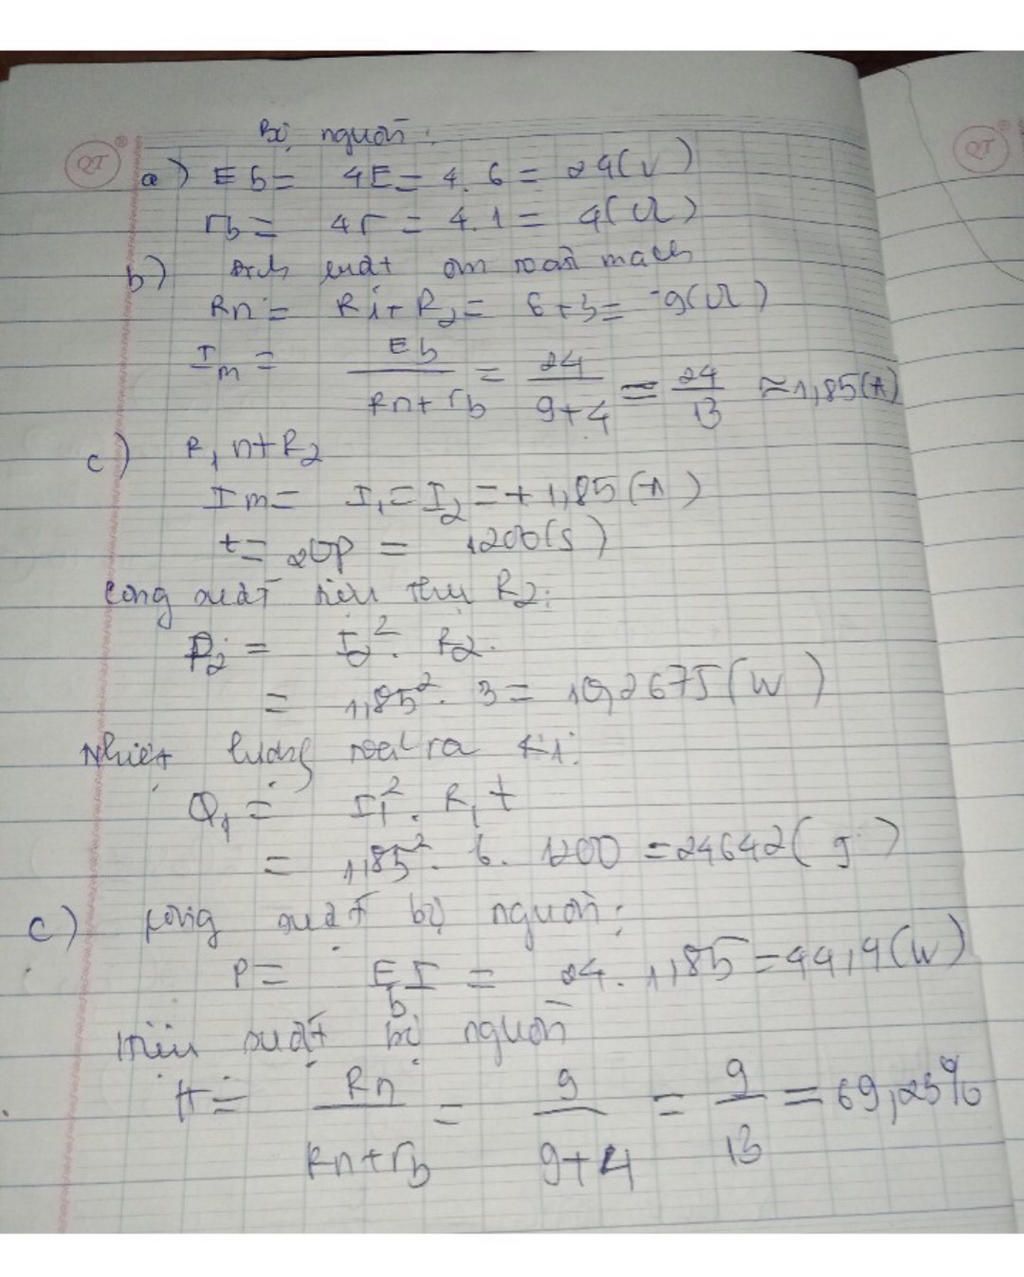 QT
QT
Bộ nguồn:
a) Eb = 4E = 4.6 = 24(V)
rb = 4r = 4.1 = 4(Ω)
b) ôm toàn mạch
Rn = R1 + R2 = 6+3 = 9(Ω)
Im = Eb / Rn + rb = 24 / 9+4 = 24 / 13 ≈ 1,85(A)
c) R1 nt R2
Im = I1 = I2 = + 1,85(A)
t = 20p = 1200(s)
Công suất tiêu thụ R2:
P2 = I2². R2.
= 1,85². 3 = 10,2675(W)
Nhiệt lượng toả ra R1:
Q1 = I1². R1 t
= 1,85². 6. 1200 = 24642( J )
c) công suất bộ nguồn:
P = Eb I = 24. 1,85 = 44,4(W)
Hiệu suất bộ nguồn
H = Rn / Rn + rb = 9 / 9+4 = 9 / 13 = 69,23%